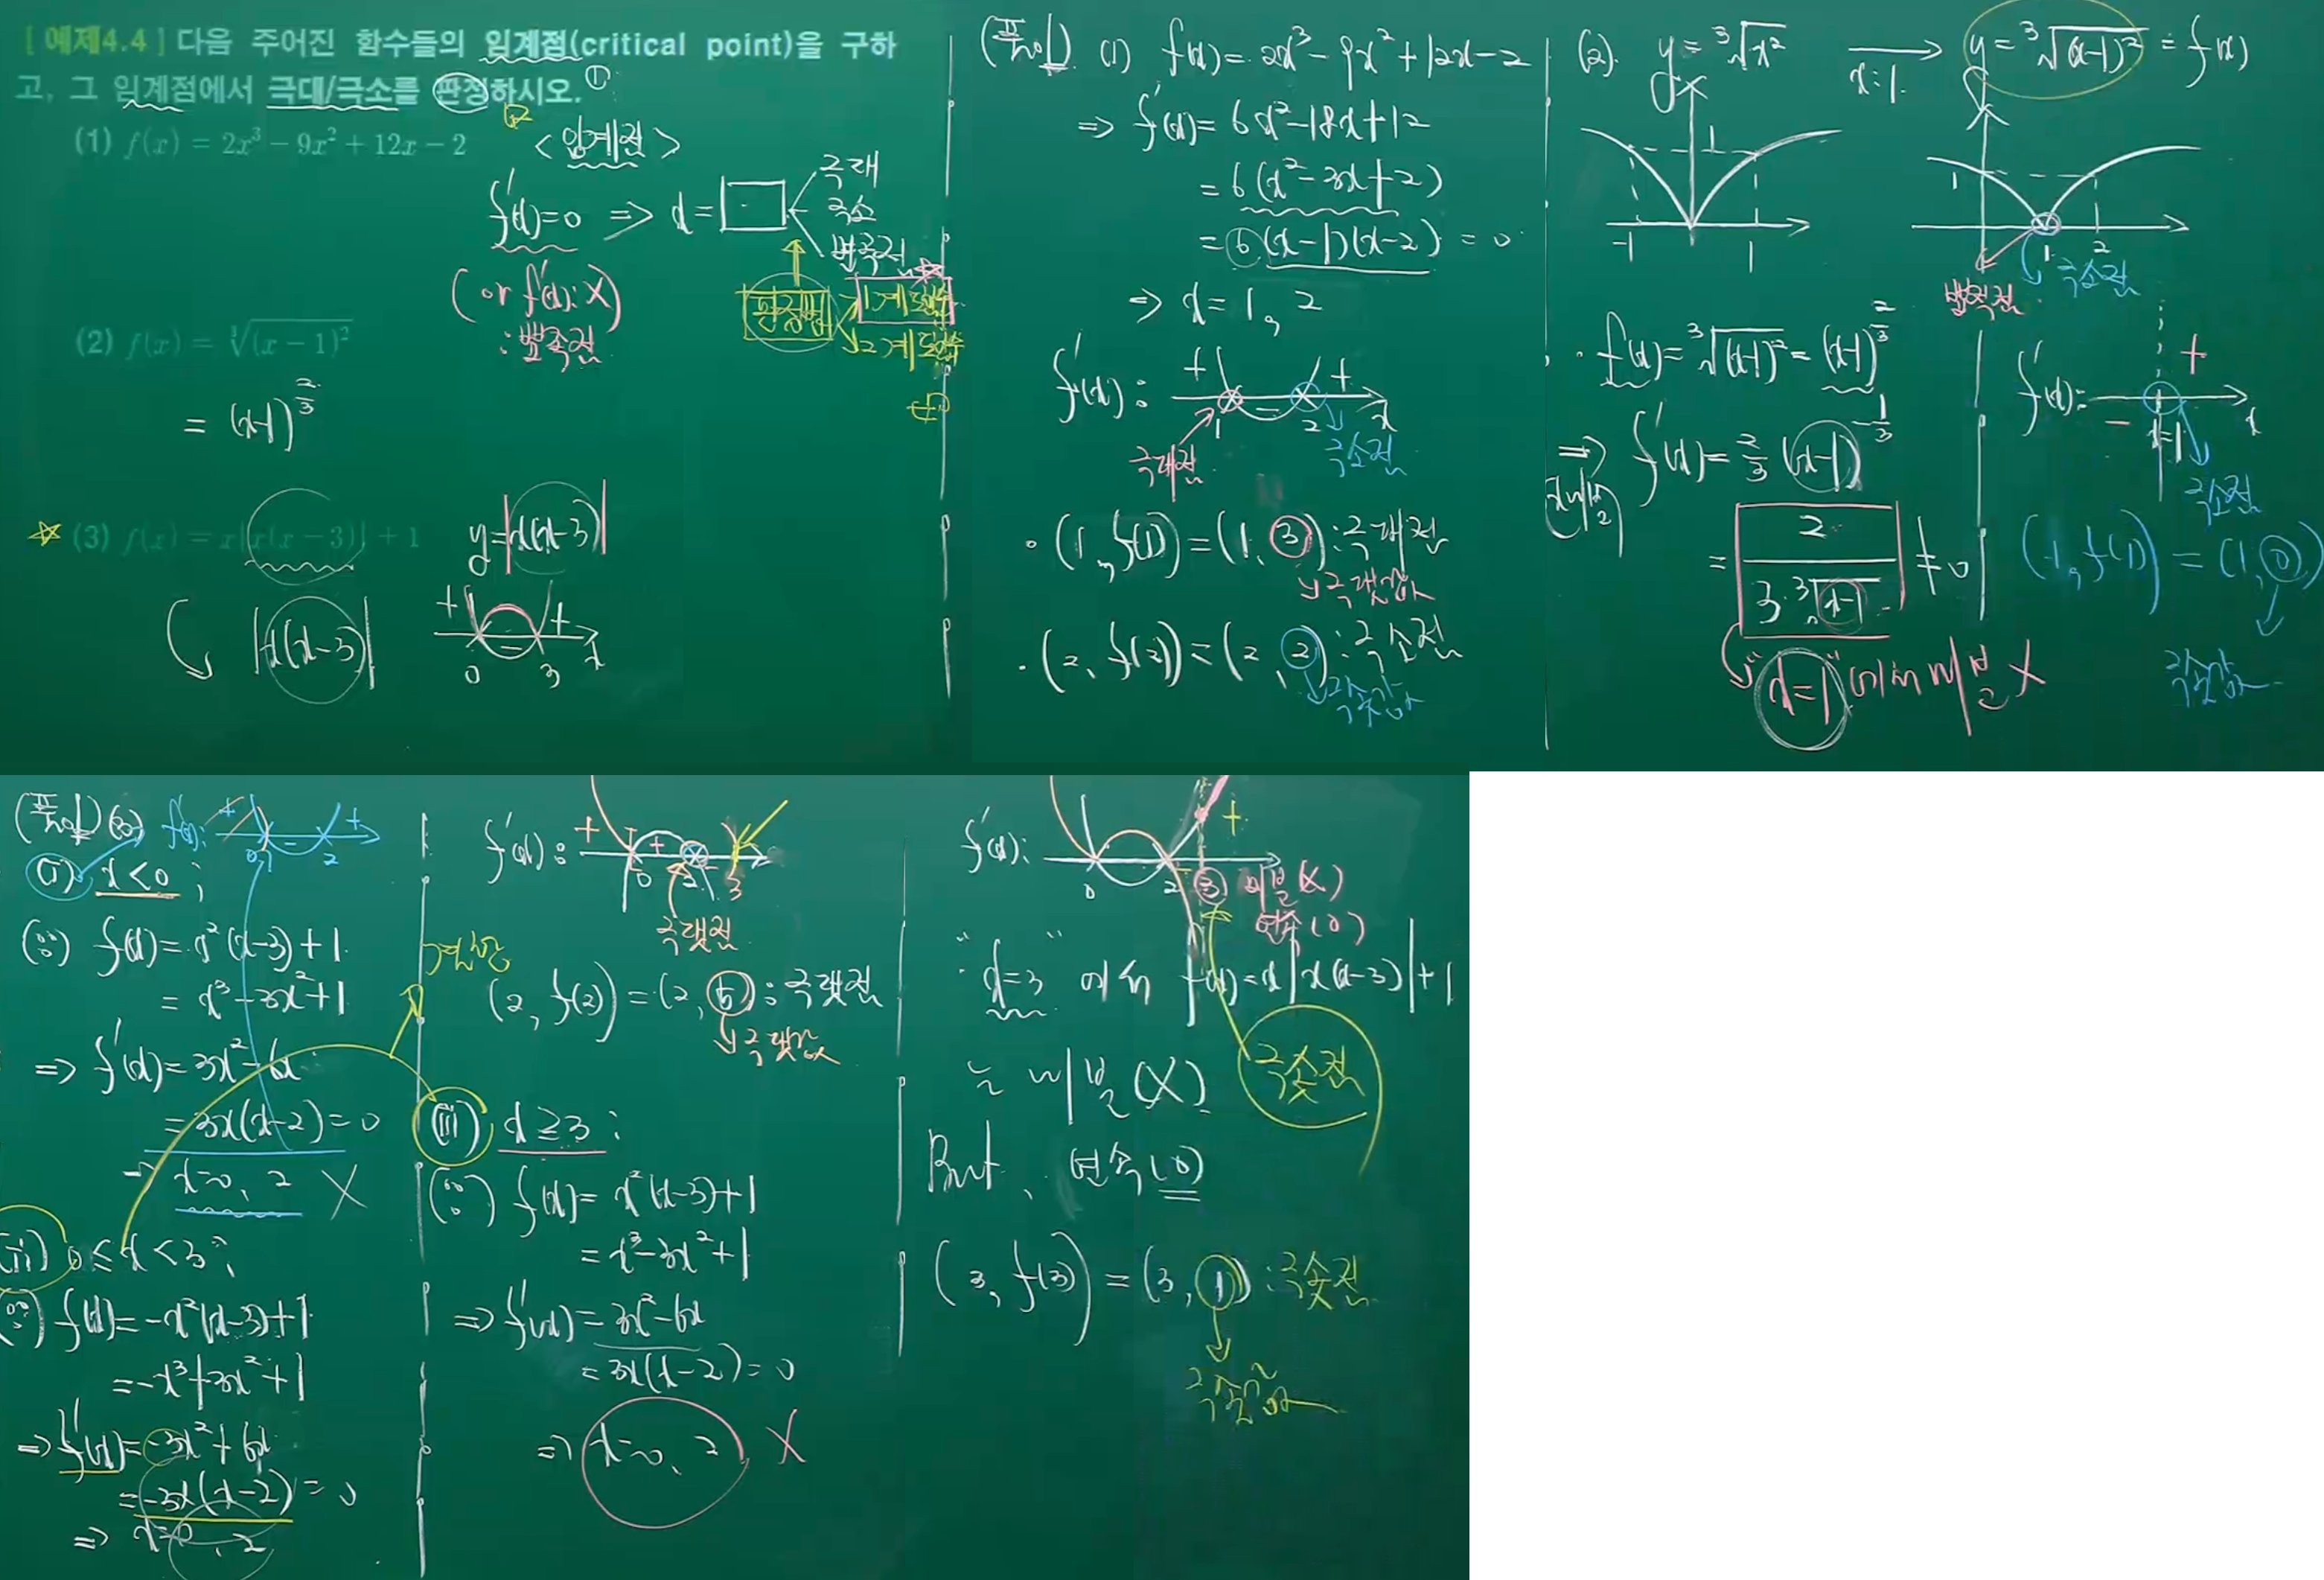 [예제4.4] 다음 주어진 함수들의 임계점(critical point)을 구하
고, 그 임계점에서 극대/극소를 판정하시오. ①
②
(1) f(x) = 2x³ − 9x² + 12x − 2
<임계점>
f'(x)=0 ⇒ x= □
극대
극소
변곡점
(or f'(x): X)
: 뾰족점
판정법
1계도함수
2계도함수
(2) f(x) = ∛(x − 1)²
= (x-1)^(2/3)
☆ (3) f(x) = x|x(x − 3)| + 1
y=|x(x-3)|
|x(x-3)|
+ − +
0 3 x
(풀이) (1) f(x)= 2x³ - 9x² + 12x - 2
⇒ f'(x)= 6x² - 18x + 12
= 6(x² - 3x + 2)
= 6(x-1)(x-2) = 0
⇒ x = 1, 2
f'(x): + − +
1 2 x
극대점 극소점
· (1, f(1)) = (1, 3) : 극대점
↳ 극댓값
· (2, f(2)) = (2, 2) : 극소점
↳ 극솟값
(2). y = ∛x² → y = ∛(x-1)² = f(x)
x:1.
1
-1 1
1
1 2
뾰족점 극소점
· f(x) = ∛(x-1)² = (x-1)^(2/3)
⇒ f'(x) = 2/3 (x-1)^(-1/3)
x에 대해 미분
= 2 / 3·∛(x-1) ≠ 0
"x=1"에서 미분 X
f'(x): − +
x=1 x
극소점
(1, f(1)) = (1, 0)
극솟값
(풀이) (3) f'(x): + − +
0 2
(i) x<0 ;
(∵) f(x) = x²(x-3)+1
= x³-3x²+1
⇒ f'(x) = 3x²-6x
= 3x(x-2) = 0
→ x=0, 2 X
(ii) 0≤x<3 ;
(∵) f(x) = -x²(x-3)+1
= -x³+3x²+1
⇒ f'(x) = -3x²+6x
= -3x(x-2) = 0
⇒ x=0, 2
f'(x): + +
0 2 3
극댓점
(2, f(2)) = (2, 5) : 극댓점
↳ 극댓값
(iii) x≥3 ;
(∵) f(x) = x²(x-3)+1
= x³-3x²+1
⇒ f'(x) = 3x²-6x
= 3x(x-2) = 0
⇒ x=0, 2 X
f'(x): − +
0 2 3 미분(X)
연속(O)
"x=3"에서 f(x)=x|x(x-3)|+1
는 미분(X)
But, 연속(O)
극솟점
(3, f(3)) = (3, 1) : 극솟점
↓
극솟값